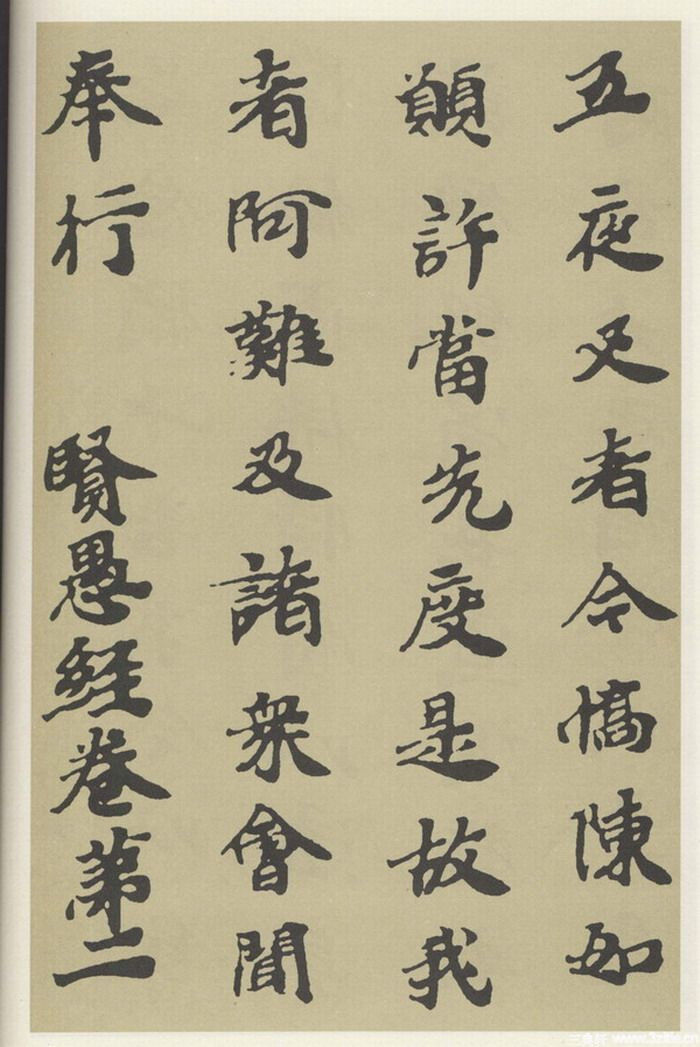 五夜叉者今憍陳如
願許當先度是故我
者阿難及諸衆會聞
奉行 賢愚經卷第二